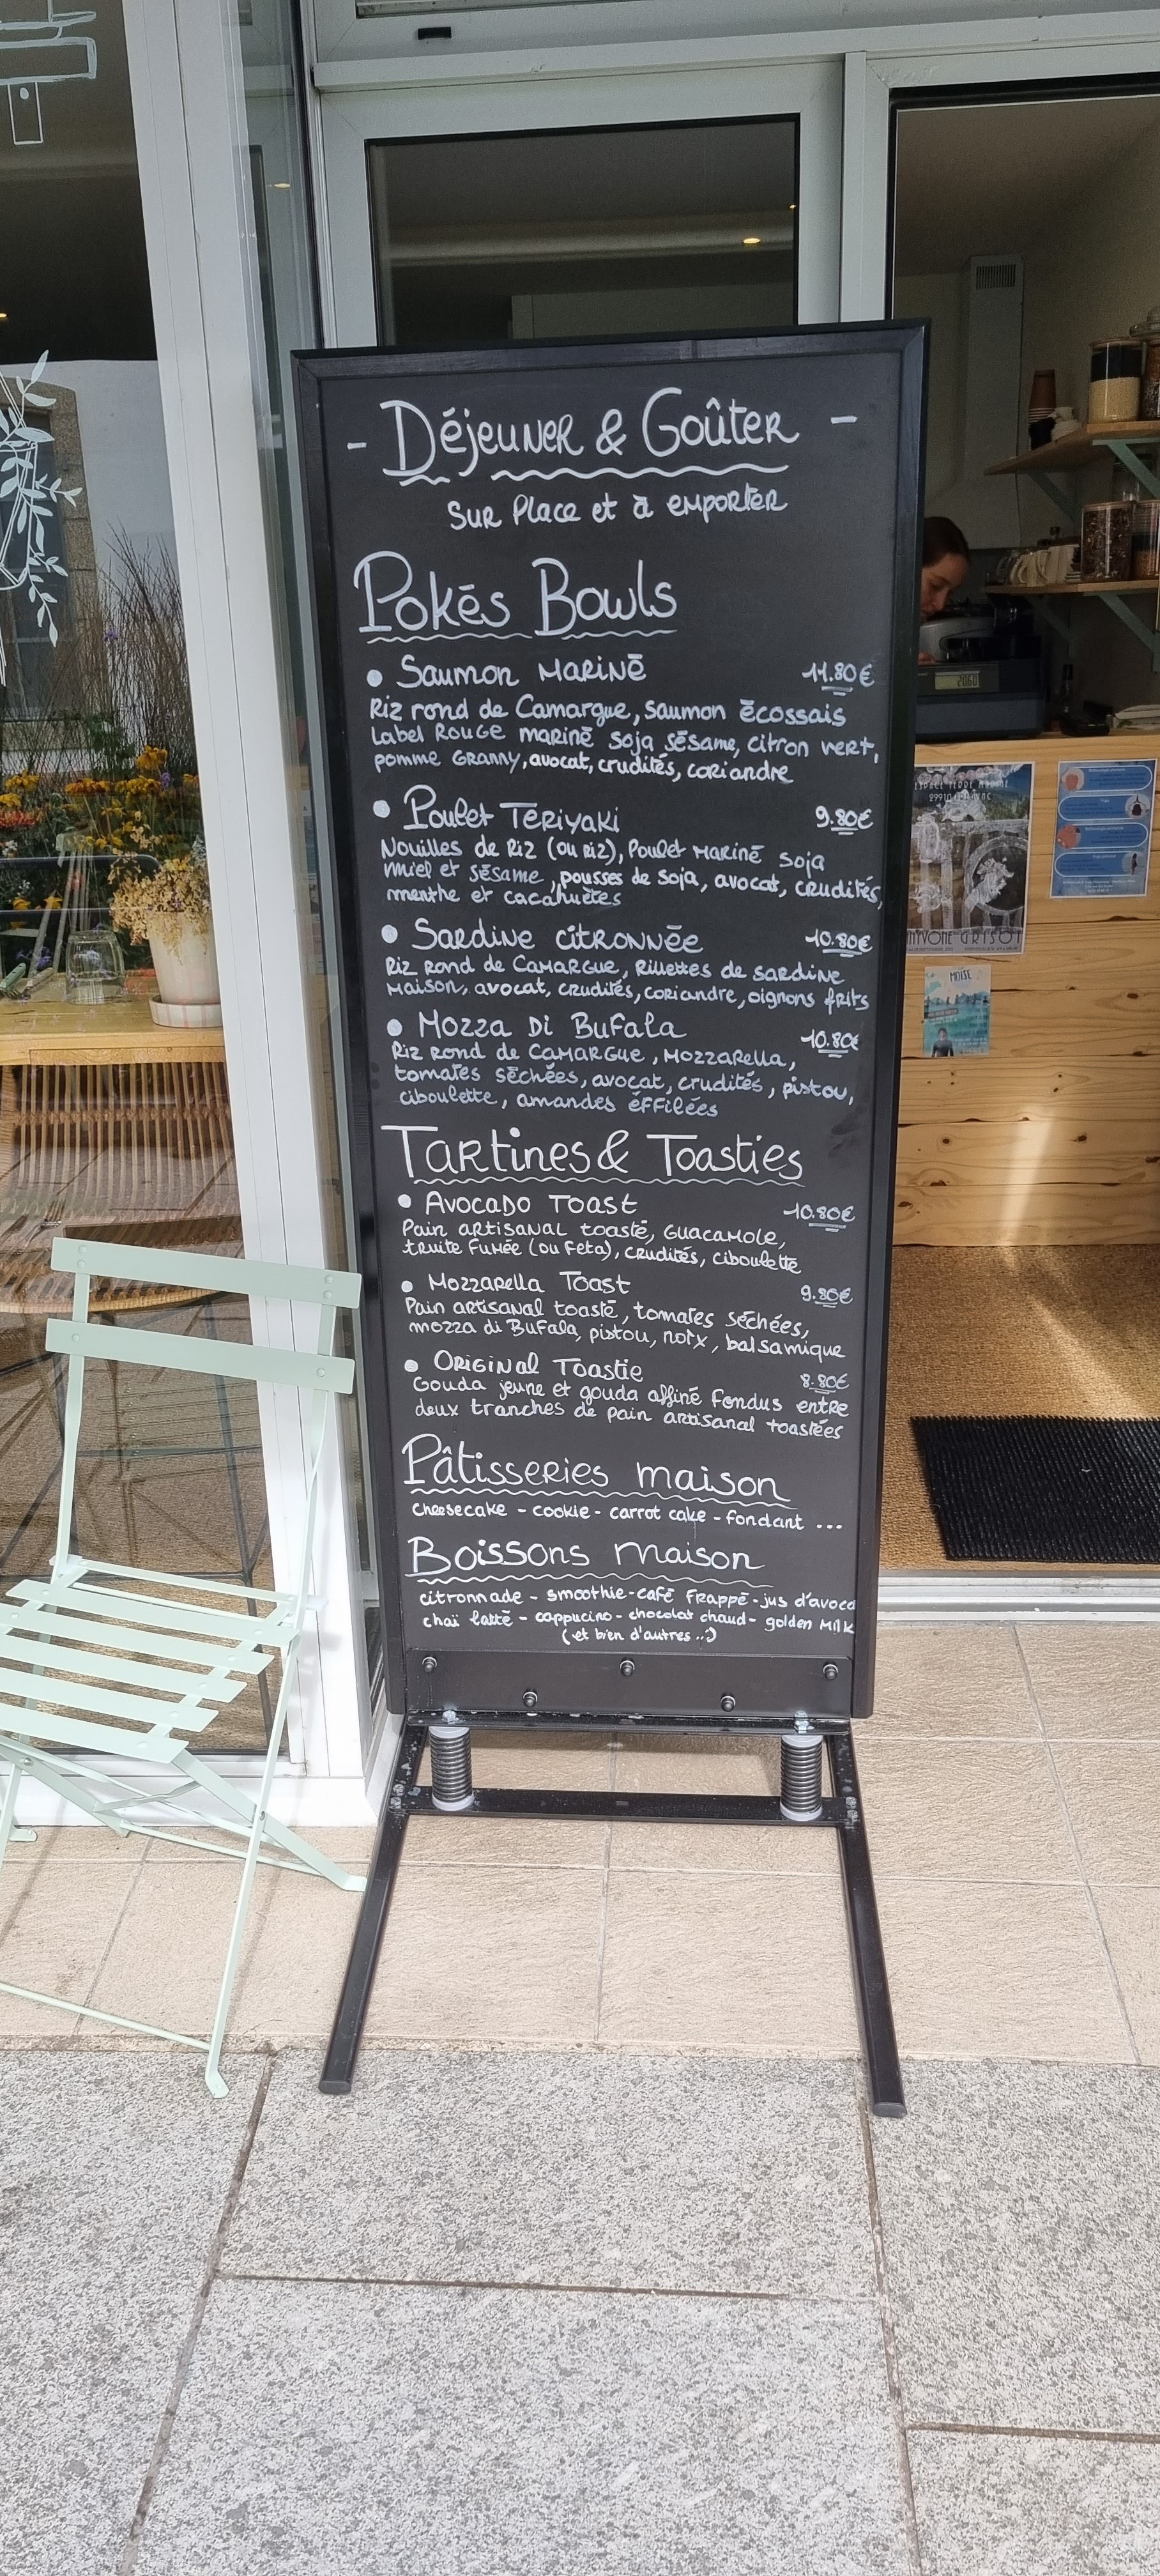 - Déjeuner & Goûter -
Sur Place et à emporter
Pokés Bowls
• Saumon Mariné 11.80€
Riz rond de Camargue, saumon écossais
Label Rouge mariné soja sésame, citron vert,
pomme Granny, avocat, crudités, coriandre
• Poulet Tériyaki 9.80€
Nouilles de Riz (ou Riz), Poulet Mariné soja
miel et sésame, pousses de soja, avocat, crudités,
menthe et cacahuètes
• Sardine citronnée 10.80€
Riz rond de Camargue, Rillettes de sardine
Maison, avocat, crudités, coriandre, oignons frits
• Mozza Di Bufala 10.80€
Riz rond de Camargue, Mozzarella,
tomates séchées, avocat, crudités, pistou,
ciboulette, amandes éffilées
Tartines & Toasties
• Avocado Toast 10.80€
Pain artisanal toasté, Guacamole,
truite fumée (ou Feta), crudités, ciboulette
• Mozzarella Toast 9.80€
Pain artisanal toasté, tomates séchées,
mozza di Bufala, pistou, noix, balsamique
• Original Toastie 8.80€
Gouda jeune et gouda affiné fondus entre
deux tranches de pain artisanal toastées
Pâtisseries maison
cheesecake - cookie - carrot cake - fondant ...
Boissons maison
citronnade - smoothie - café Frappé - jus d'avoca
chaï latté - cappucino - chocolat chaud - golden Milk
(et bien d'autres ..:)
2060
YVONE GRISOT
MOÏSE